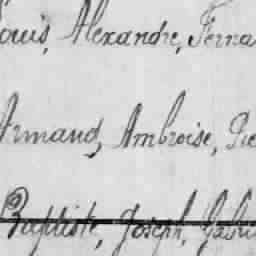 Louis, Alexandre, Ferna
Armand, Ambroise, Pie
Baptiste, Joseph, Gabri